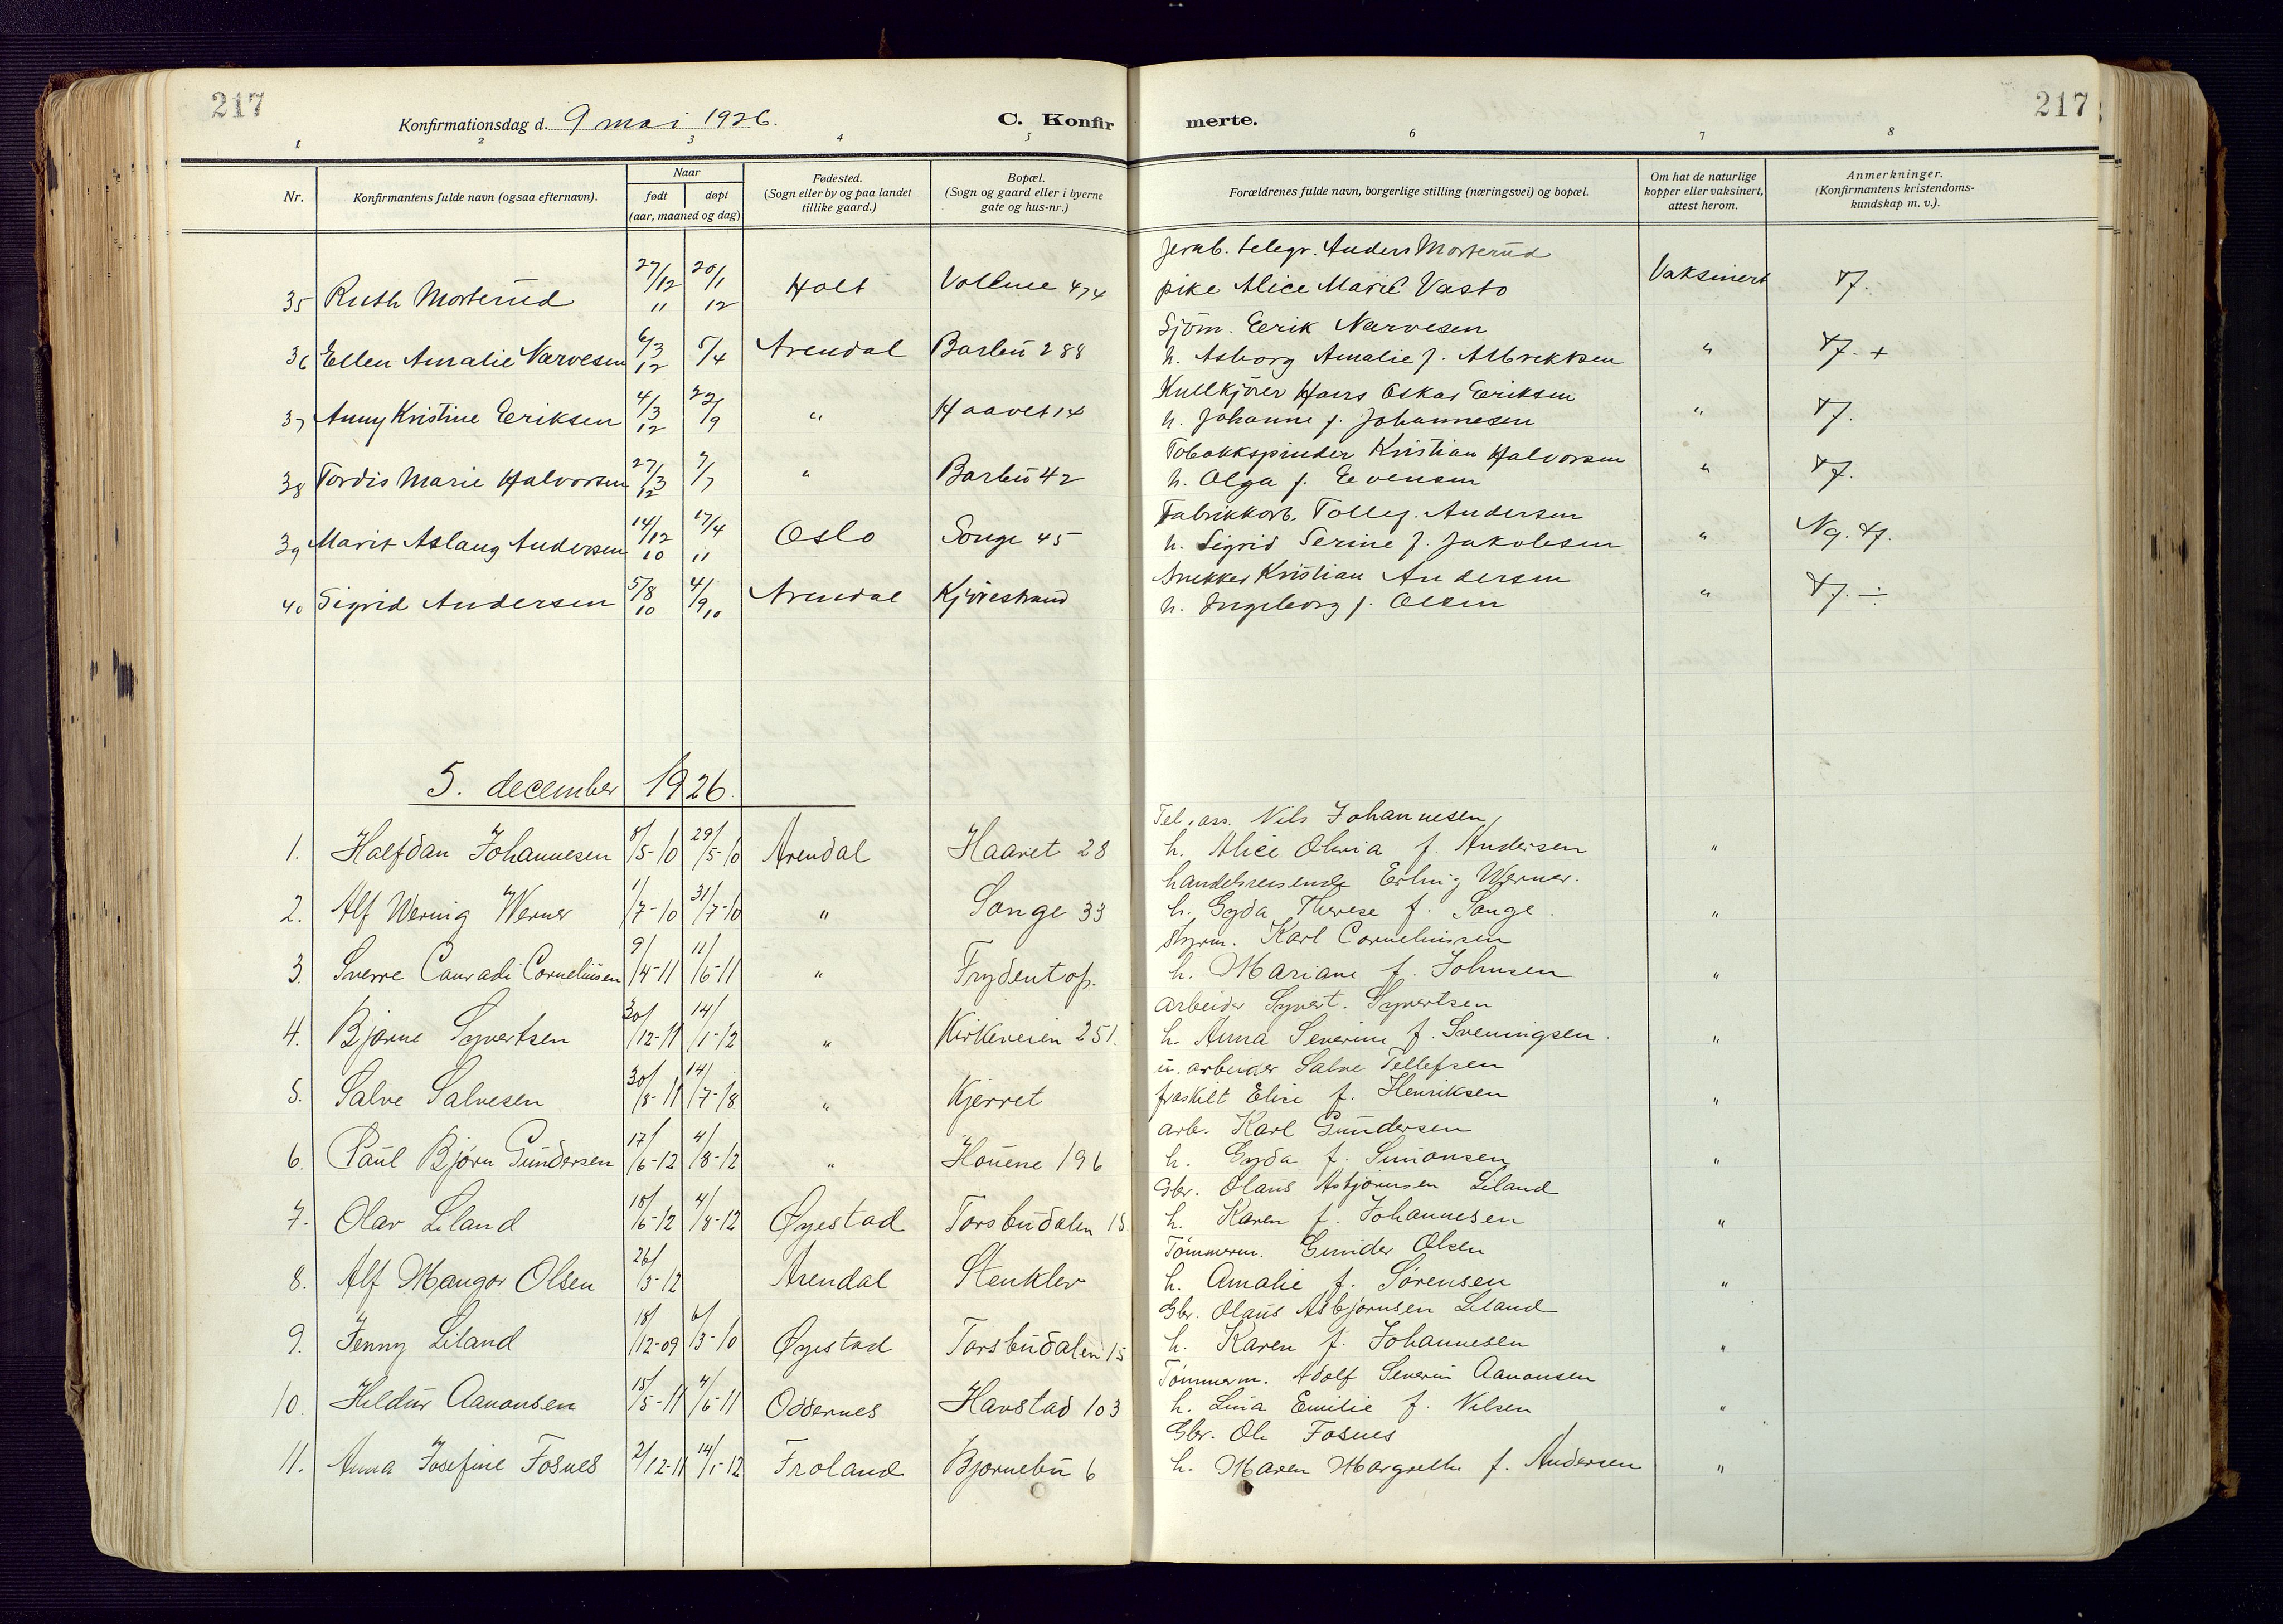 217
217
Konfirmationsdag d. 9 mai 1926.
C. Konfir merte.
1 2 3 4 5 6 7 8
Nr.
Konfirmantens fulde navn (ogsaa efternavn).
Naar
født døpt
(aar, maaned og dag)
Fødested.
(Sogn eller by og paa landet
tillike gaard.)
Bopæl.
(Sogn og gaard eller i byerne
gate og hus-nr.)
Forældrenes fulde navn, borgerlige stilling (næringsvei) og bopæl.
Om hat de naturlige
kopper eller vaksinert,
attest herom.
Anmerkninger.
(Konfirmantens kristendoms-
kundskap m. v.).
Jernb. telegr. Anders Morterud
35 Ruth Morterud 27/12 11 20/1 12 Holt Vollene 474 pike Alice Marie Vasto Vaksinert
Sjöm. Eerik Narvesen
36 Ellen Amalie Narvesen 6/3 12 5/4 Arendal Barbu 288 h. Asborg Amalie f. Albrektsen "
Kullkjörer Hans Oskar Eeriksen
37 Anny Kristine Eeriksen 4/3 12 22/9 " Haavet 14 h. Johanne f. Johannesen "
Tobakkspinder Kristian Halvorsen
38 Tordis Marie Halvorsen 27/3 12 7/7 " Barbu 42 h. Olga f. Evensen "
Fabrikkarb. Tolley. Andersen
39 Marit Aslaug Andersen 14/12 10 17/4 11 Oslo Songe 45 h. Sigrid Serine f. Jakobsen "
Snekker Kristian Andersen
40 Sigrid Andersen 5/8 10 4/9 10 Arendal Kjörestrand h. Ingeborg f. Olsen "
5. december 1926.
Tel. ass. Nils Johannesen,
1. Halfdan Johannesen 8/5-10 29/5-10 Arendal Haavet 28 h. Alice Olivia f. Andersen "
handelsreisende Erling Werner.
2. Alf Wernig Werner 1/7-10 31/7-10 " Songe 33 h. Gyda Therese f. Songe. "
styrm. Karl Corneliussen
3. Sverre Conradi Corneliussen 9/4-11 11/6-11 " Frydentop. h. Mariane f. Johnsen "
arbeider Syvert. Syvertsen
4. Bjarne Syvertsen 30/12-11 14/1-12 " Kirkeveien 251. h. Anna Severine f. Sveningsen. "
u. arbeider Salve Tellefsen
5. Salve Salvesen 30/8-11 14/7-18 " Kjerret fraskilt Elise f. Henriksen "
arb. Karl Gundersen
6. Paul Bjørn Gundersen 17/6-12 4/8-12 " Houene 196 h. Gyda f. Simonsen "
Gbr. Olaus Asbjørnsen Liland
7. Olav Liland 18/6-12 4/8-12 Øyestad Torsbudalen 15 h. Karen f. Johannesen "
Tømmerm. Gunder Olsen
8. Alf Mangor Olsen 26/3-12 Arendal Stenklev h. Amalie f. Sørensen "
Gbr. Olaus Asbjørnsen Liland
9. Jenny Liland 18/12-09 6/3-10 Øyestad Torsbudalen 15 h. Karen f. Johannesen "
Tømmerm. Adolf Severin Aanonsen
10. Hildur Aanonsen 15/5-11 4/6-11 Oddernes Havstad 103 h. Lina Emilie f. Nilsen "
Gbr. Ole Fosnes
11. Anna Josefine Fosnes 2/12-11 14/1-12 Froland Bjørnebu 6 h. Maren Margrethe f. Andersen "